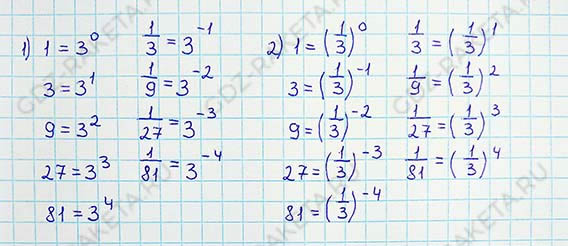 1) 1 = 3⁰ 1/3 = 3⁻¹
3 = 3¹ 1/9 = 3⁻²
9 = 3² 1/27 = 3⁻³
27 = 3³ 1/81 = 3⁻⁴
81 = 3⁴
2) 1 = (1/3)⁰ 1/3 = (1/3)¹
3 = (1/3)⁻¹ 1/9 = (1/3)²
9 = (1/3)⁻² 1/27 = (1/3)³
27 = (1/3)⁻³ 1/81 = (1/3)⁴
81 = (1/3)⁻⁴
GDZ-RAKETA.RU